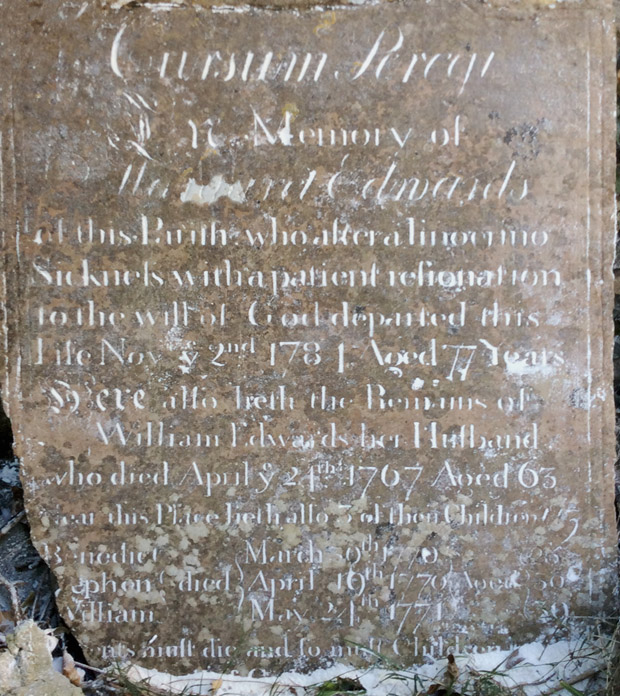 Cursum Peregi
In Memory of
Margaret Edwards
of this Parish, who after a lingering
Sickneſs with a patient resignation
to the will of God departed this
Life Nov y 2nd 1781 Aged 77 Years
Here alſo lieth the Remains of
William Edwards her Huſband
who died April y 24th 1767 Aged 63
Near this Place lieth alſo 3 of their Children
Benedict March 30th 1770
Stephen died April 19th 1770 Aged 30
William May 24th 1771 39
muſt die and ſo muſt Children